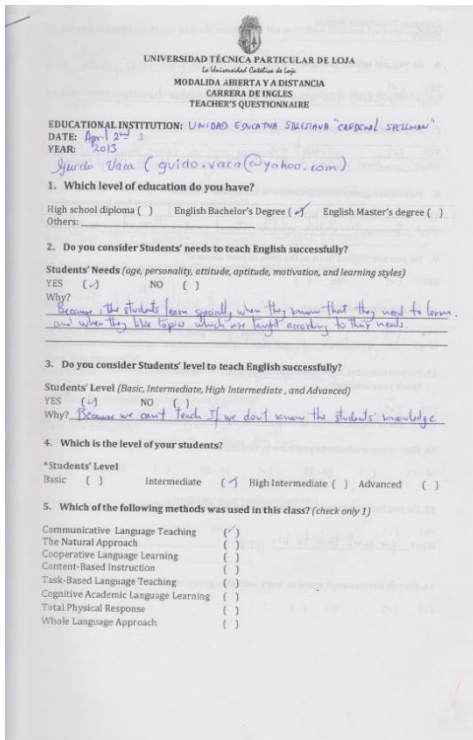 UNIVERSIDAD TÉCNICA PARTICULAR DE LOJA
La Universidad Católica de Loja
MODALIDA ABIERTA Y A DISTANCIA
CARRERA DE INGLES
TEACHER'S QUESTIONNAIRE
EDUCATIONAL INSTITUTION: UNIDAD EDUCATIVA SALESIANA "CARDENAL SPELLMAN"
DATE: April 2nd
YEAR: 2013
Guido Vaca (guido.vaca@yahoo.com)
1. Which level of education do you have?
High school diploma ( ) English Bachelor's Degree (✓) English Master's degree ( )
Others:
2. Do you consider Students' needs to teach English successfully?
Students' Needs (age, personality, attitude, aptitude, motivation, and learning styles)
YES (✓) NO ( )
Why?
Because, the students learn specially when they know that they need to learn.
and when they like topics which are taught according to their needs.
3. Do you consider Students' level to teach English successfully?
Students' Level (Basic, Intermediate, High Intermediate, and Advanced)
YES (✓) NO ( )
Why? Because we can't teach If we don't know the students' knowledge
4. Which is the level of your students?
*Students' Level
Basic ( ) Intermediate (✓) High Intermediate ( ) Advanced ( )
5. Which of the following methods was used in this class? (check only 1)
Communicative Language Teaching (✓)
The Natural Approach ( )
Cooperative Language Learning ( )
Content-Based Instruction ( )
Task-Based Language Teaching ( )
Cognitive Academic Language Learning ( )
Total Physical Response ( )
Whole Language Approach ( )